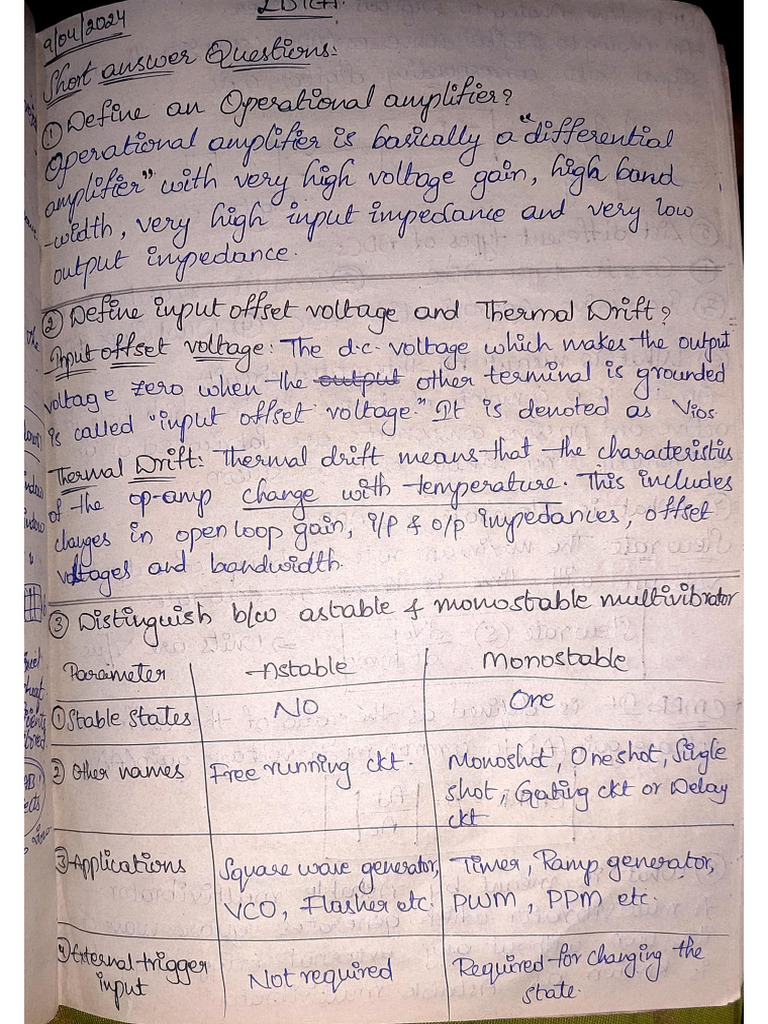 9/04/2024
Short answer Questions:
① Define an Operational amplifier?
Operational amplifier is basically a "differential
amplifier" with very high voltage gain, high band
-width, very high input impedance and very low
output impedance.
② Define input offset voltage and Thermal Drift?
Input offset voltage: The d.c. voltage which makes the output
voltage zero when the output other terminal is grounded
is called "input offset voltage." It is denoted as Vios
Thermal Drift: Thermal drift means that the characteristics
of the op-amp change with temperature. This includes
changes in open loop gain, i/p & o/p impedances, offset
voltages and bandwidth.
③ Distinguish b/w astable & monostable multivibrator
Parameter Astable Monostable
① Stable States NO One
② Other names Free running ckt. Monoshot, Oneshot, Single
shot, Gating ckt or Delay
ckt
③ Applications Square wave generator, Timer, Ramp generator,
VCO, Flasher etc. PWM, PPM etc.
④ External trigger Not required Required for changing the
input state.